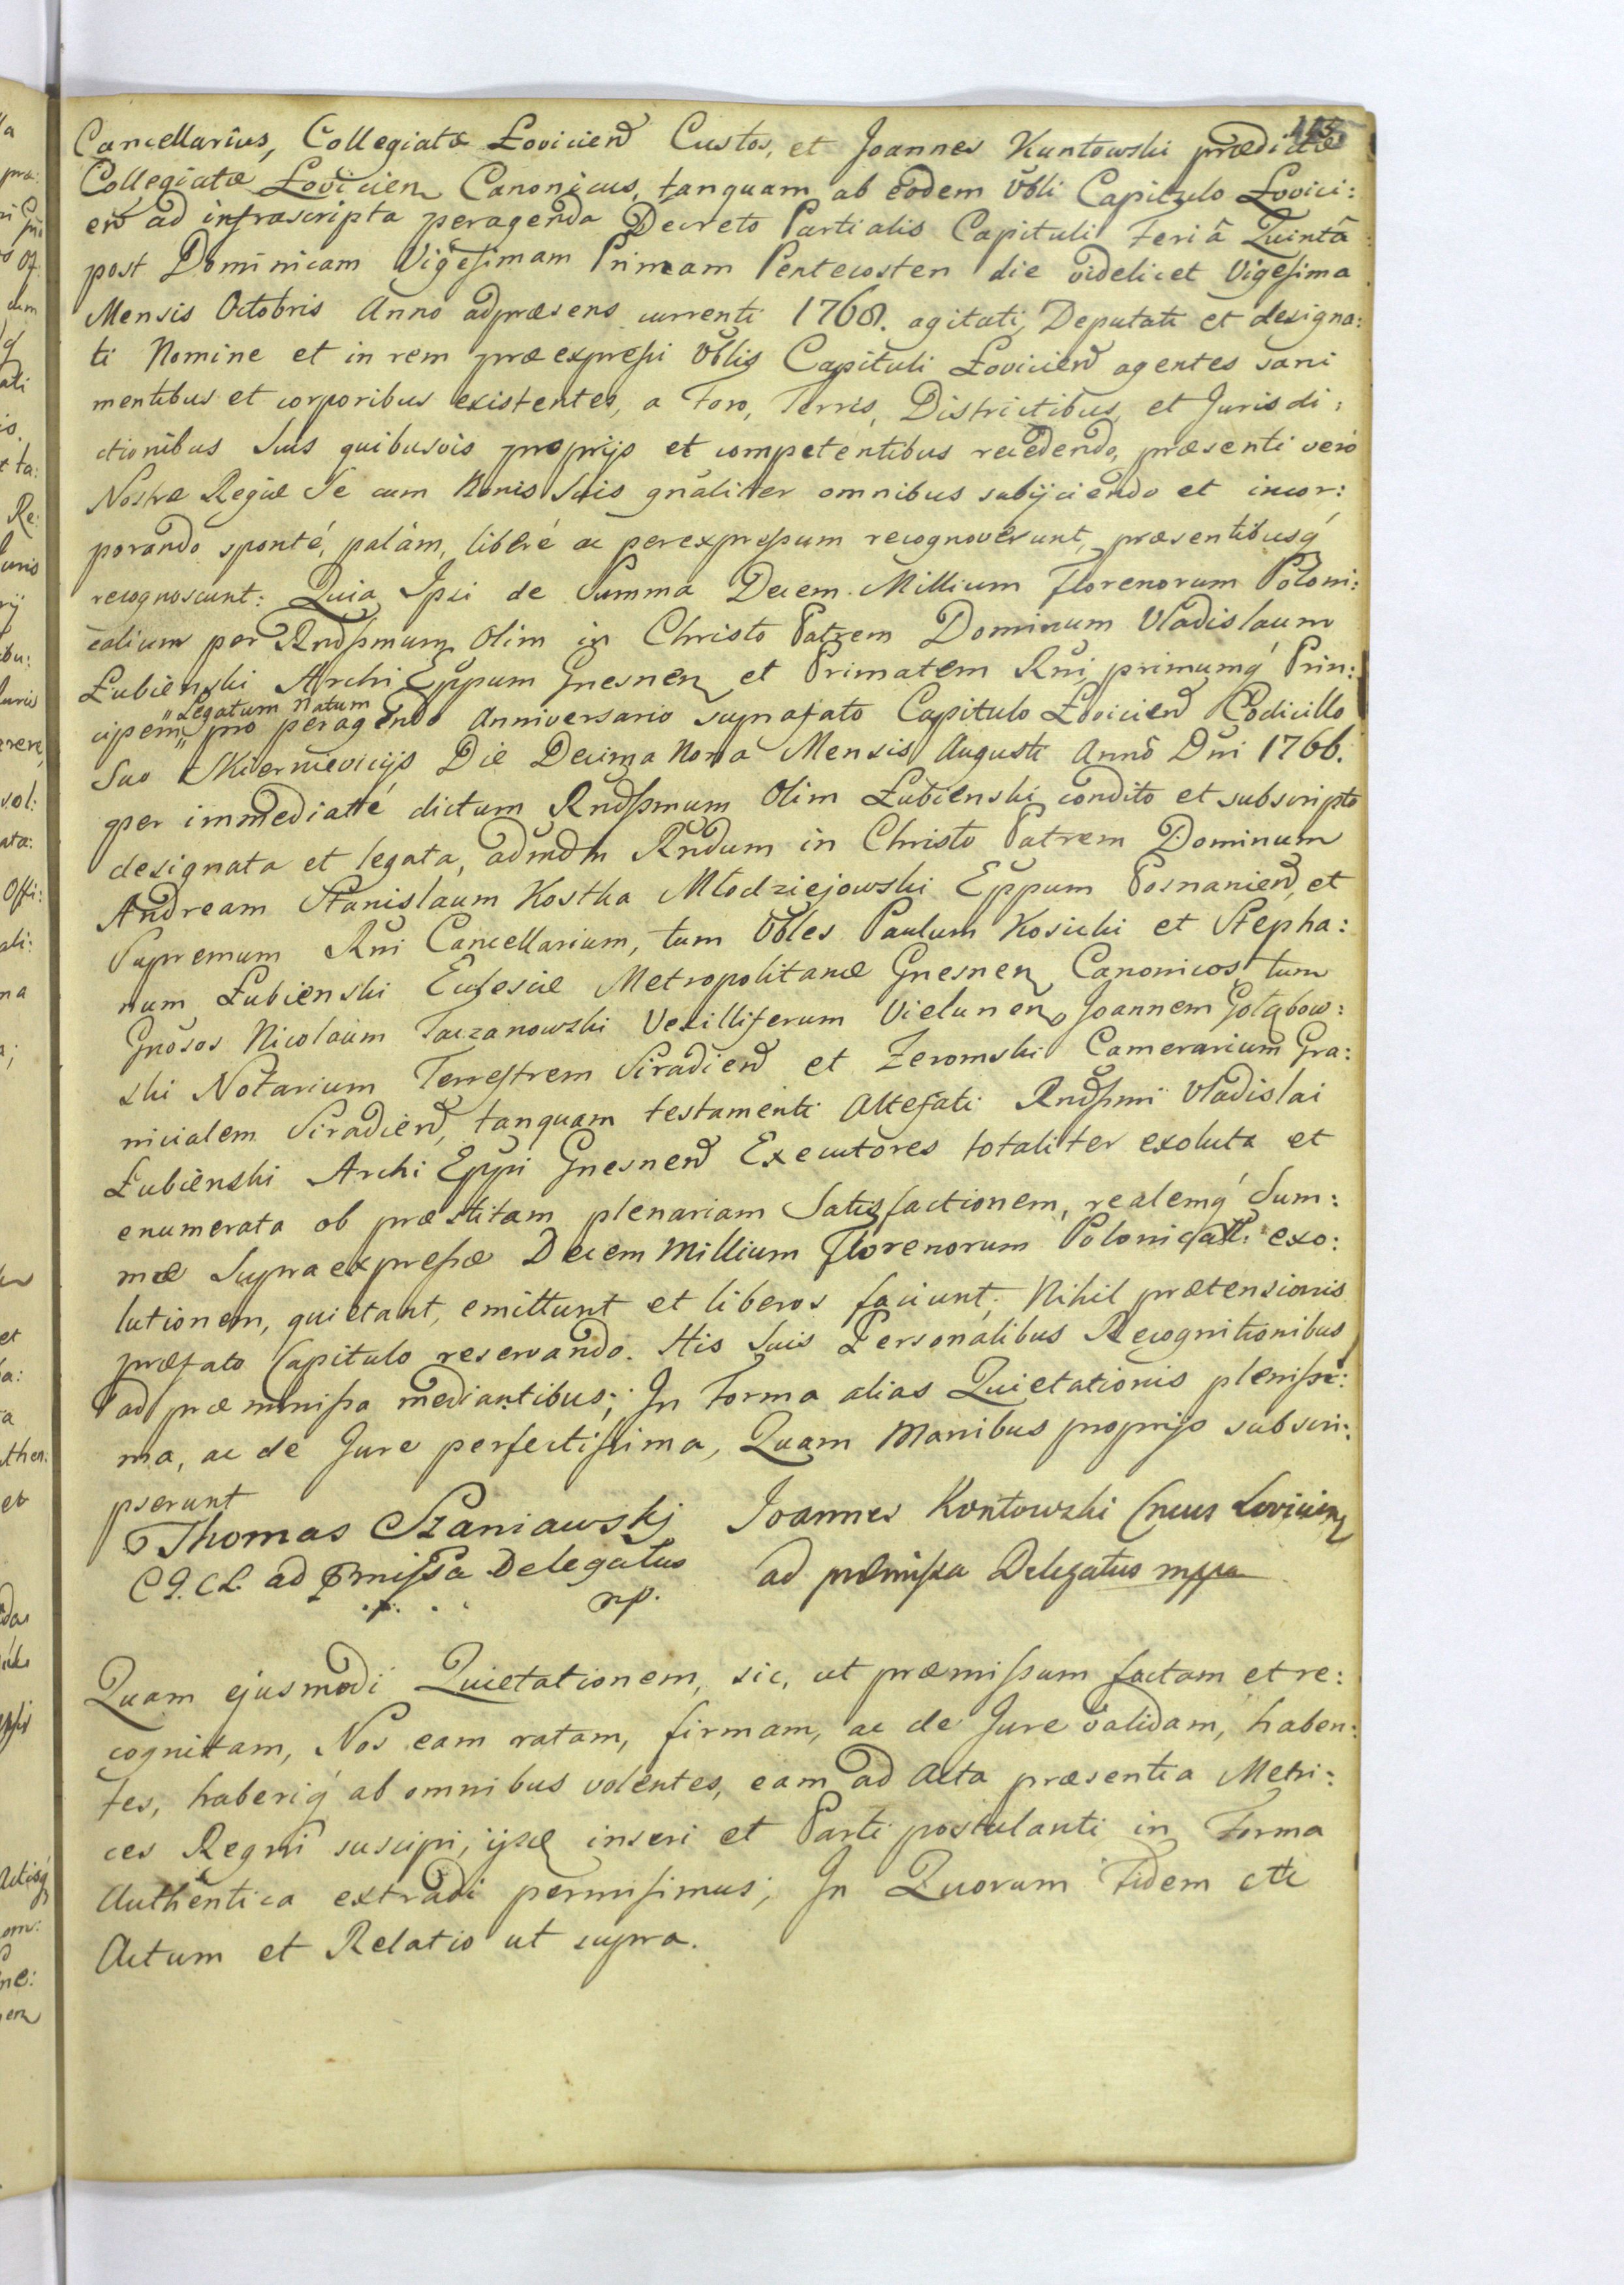 Cancellarius, Collegiatæ Łovicien̄ Custos, et Joannes Kuntowski prædictæ
Collegiatæ Łovicien̄ Canonicus, tanquam ab eodem Vbli Capitulo Łovici:
en̄ ad infrascripta peragenda Decreto Partialis Capituli Feriâ Quintâ
post Dominicam Vigesimam Primam Pentecosten die videlicet Vigesima
Mensis Octobris Anno adpræsens currenti 1768. agitati, Deputati et designa:
ti Nomine et in rem præexpressi Vblis Capituli Łovicien̄ agentes sani
mentibus et corporibus existentes, a Foro, Terris, Districtibus, et Jurisdi:
ctionibus suis quibusvis proprijs et competentibus recedendo, præsenti vero
Nostræ Regiæ Se cum Bonis Suis gnāliter omnibus subijciendo et incor:
porando sponté, palàm, liberé ac perexpressum recognoverunt, præsentibusq́
recognoscunt: Quia Ipsi de Summa Decem Millium Florenorum Poloni:
calium per Rndssmum Olim in Christo Patrem Dominum Vladislaum
Łubienski Archi Eppum Gnesnen̄ et Primatem Rni, primumq́ Prin:
"Legatum Natum
cipem" pro peragendo Anniversario suprafato Capitulo Łovicien̄ Codicillo
Suo Skiernievicijs Die Decima Nona Mensis Augusti Annô Dni 1766.
per immediatté dictum Rndssmum Olim Łubienski condito et subscripto
designata et legata, admdm Rndum in Christo Patrem Dominum
Andream Stanislaum Kostka Młodziejowski Eppum Posnanien̄, et
Supremum Rni Cancellarium, tum Vbles Paulum Kosicki et Stepha:
num Łubienski Ecclesiæ Metropolitanæ Gnesnen̄ Canonicos, tum
Gnōsos Nicolaum Taczanowski Vexilliferum Vielunen̄, Joannem Gołąbow:
ski Notarium Terrestrem Siradien̄ et Zeromski Camerarium Gra:
nicialem Siradien̄, tanquam testamenti Altefati Rndssmi Vladislai
Łubienski Archi Eppi Gnesnen̄ Executores totaliter exoluta et
enumerata ob præstitam plenariam Satisfactionem, realemq́ Sum:
mæ Supraexpressæ Decem Millium Florenorum Polonicall: exo:
lutionem, quietant, emittunt et liberos faciunt; Nihil prætensionis
præfato Capitulo reservando. His Suis Personalibus Recognitionibus
ad præmmissa mediantibus; In Forma alias Quietationis plenissi:
ma, ac de Jure perfectissima, Quam Manibus proprijs subscri:
pserunt
Thomas Szaniawskj Joannes Kontowski Cncus Lovicien̄
C G. C L. ad Pmissa Delegatus ad præmissa Delegatus mppa
mp.
Quam ejusmodi Quietationem, sic, ut præmissum factam et re:
cognitam, Nos eam ratam, firmam, ac de Jure validam, haben:
tes, haberiq́ ab omnibus volentes, eam ad Acta præsentia Metri:
ces Regni suscipi, ijsq inseri et Parti postulanti in Forma
Authentica extradi permisimus; In Quorum Fidem ett
Actum et Relatio ut supra.